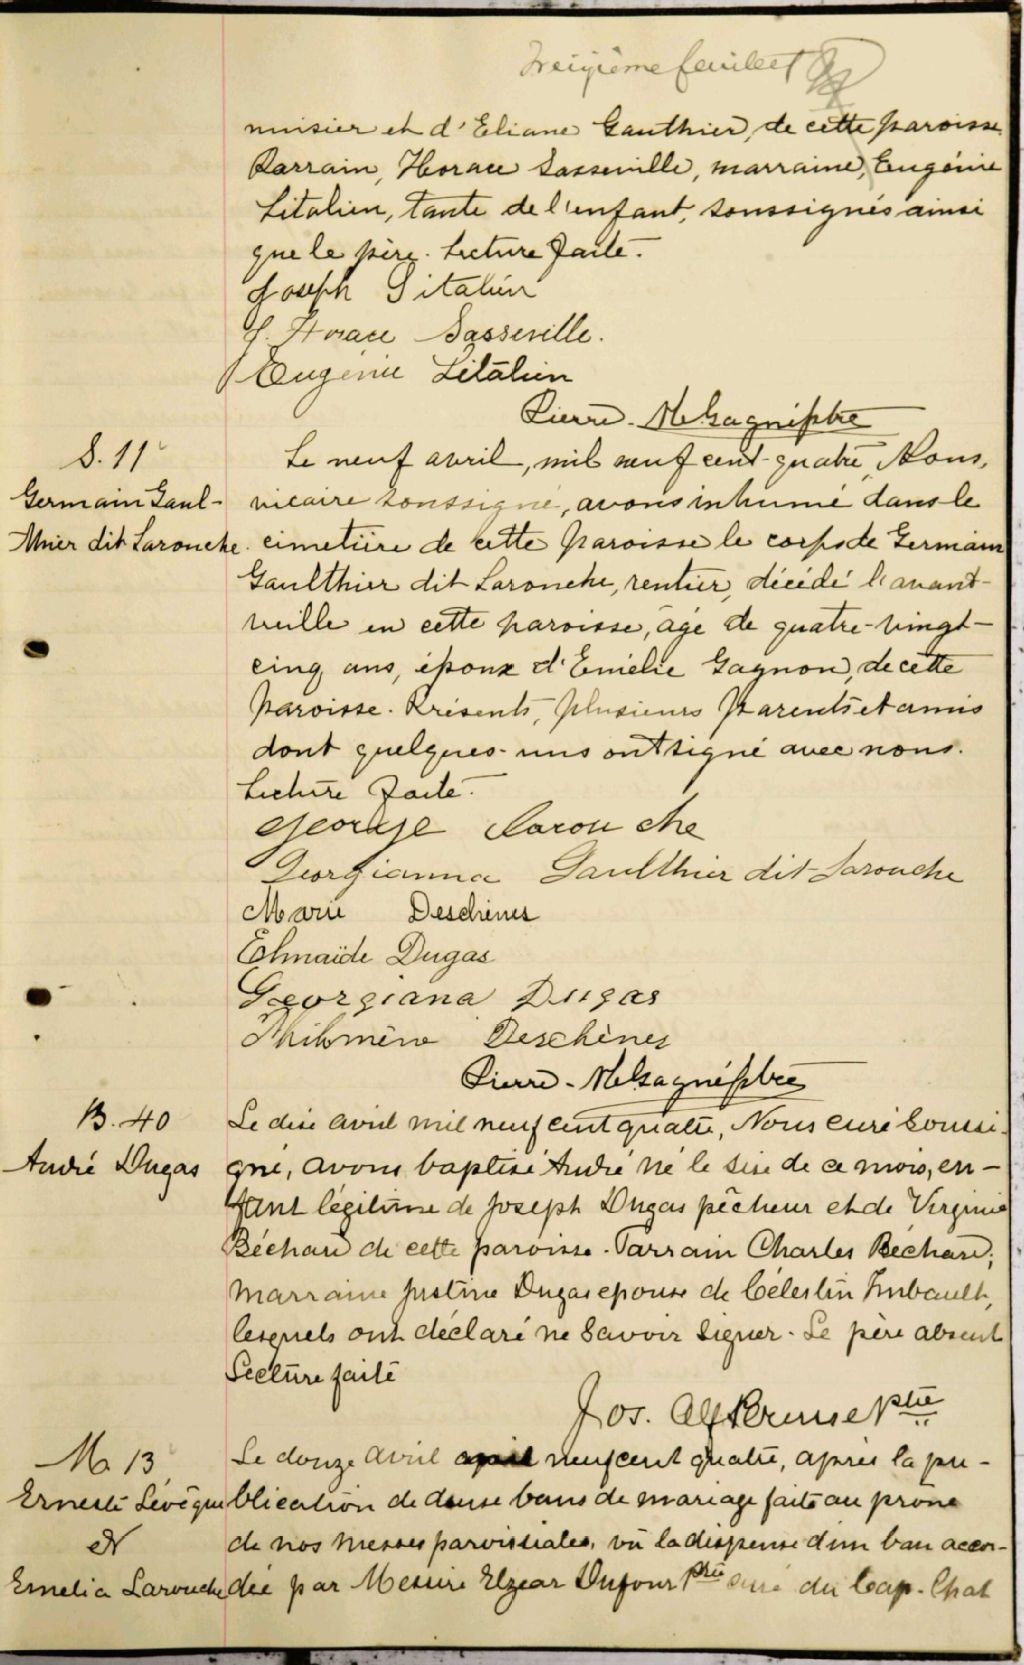 Treizième feuillet
nuisier et d'Eliane Gauthier, de cette paroisse.
Parrain, Horace Sasseville, marraine, Eugénie
Litalien, tante de l'enfant, soussignés ainsi
que le père. Lecture faite.
Joseph Litalien
J. Horace Sasseville.
Eugénie Litalien
Pierre Gagné ptre
S. 11
Germain Gaul-
thier dit Larouche.
Le neuf avril, mil neuf cent quatre, Nous,
vicaire soussigné, avons inhumé dans le
cimetière de cette paroisse le corps de Germain
Gaulthier dit Larouche, rentier, décédé l'avant-
veille en cette paroisse, âgé de quatre-vingt-
cinq ans, époux d'Emélie Gagnon, de cette
paroisse. Présents, plusieurs parents et amis
dont quelques-uns ont signé avec nous.
Lecture faite.
George Larouche
Georgianna Gaulthier dit Larouche
Marie Deschènes
Elmaïde Dugas
Georgiana Dugas
Philomène Deschènes
Pierre Gagné ptre
B. 40
André Dugas
Le dix avril mil neuf cent quatre, Nous curé soussi-
gné, avons baptisé André né le six de ce mois, en-
fant légitime de Joseph Dugas pêcheur et de Virginie
Béchard de cette paroisse. Parrain Charles Béchard;
marraine Justine Dugas épouse de Célestin Imbault,
lesquels ont déclaré ne savoir signer. Le père absent
Lecture faite
Jos. Alf Perusse Ptre
M 13
Ernest Lévêque
et
Emelia Larouche
Le douze avril neuf cent quatre, après la pu-
blication de deux bans de mariage faite au prône
de nos messes paroissiales, vû la dispense d'un ban accor-
dée par Messire Elzear Dufour Ptre curé du Cap-Chat